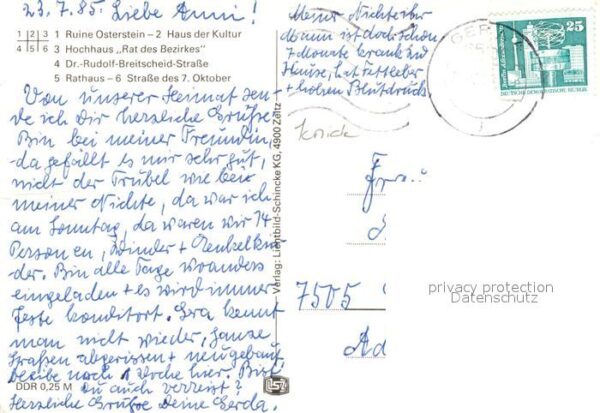 23.7.85. Liebe Anni!
1 2 3
4 5 6
1 Ruine Osterstein – 2 Haus der Kultur
3 Hochhaus „Rat des Bezirkes“
4 Dr.-Rudolf-Breitscheid-Straße
5 Rathaus – 6 Straße des 7. Oktober
Von unserer Heimat sen-
de ich dir herzliche Grüße.
Bin bei meiner Freundin,
da gefällt es mir sehr gut,
nicht der Trubel wie bei
meiner Nichte, da war ich
am Sonntag, da waren wir 14
Personen, Kinder + Enkelkin-
der. Bin alle Tage woanders
eingeladen + es wird immer
feste konditort. Gera kennt
man nicht wieder, ganze
Straßen abgerissen + neu gebaut,
bleibe noch 1 Woche hier. Bist
du auch verreist?
Herzliche Grüße Deine Gerda.
DDR 0,25 M
Verlag: Lichtbild-Schincke KG, 4900 Zeitz
Meiner Nichte ihr
Mann ist da schon
7 Monate krank zu
Hause, hat Fettleber
+ hohen Blutdruck
Knick
GER
25
DEUTSCHE DEMOKRATISCHE REPUBLIK
Frau
7505
privacy protection
Datenschutz